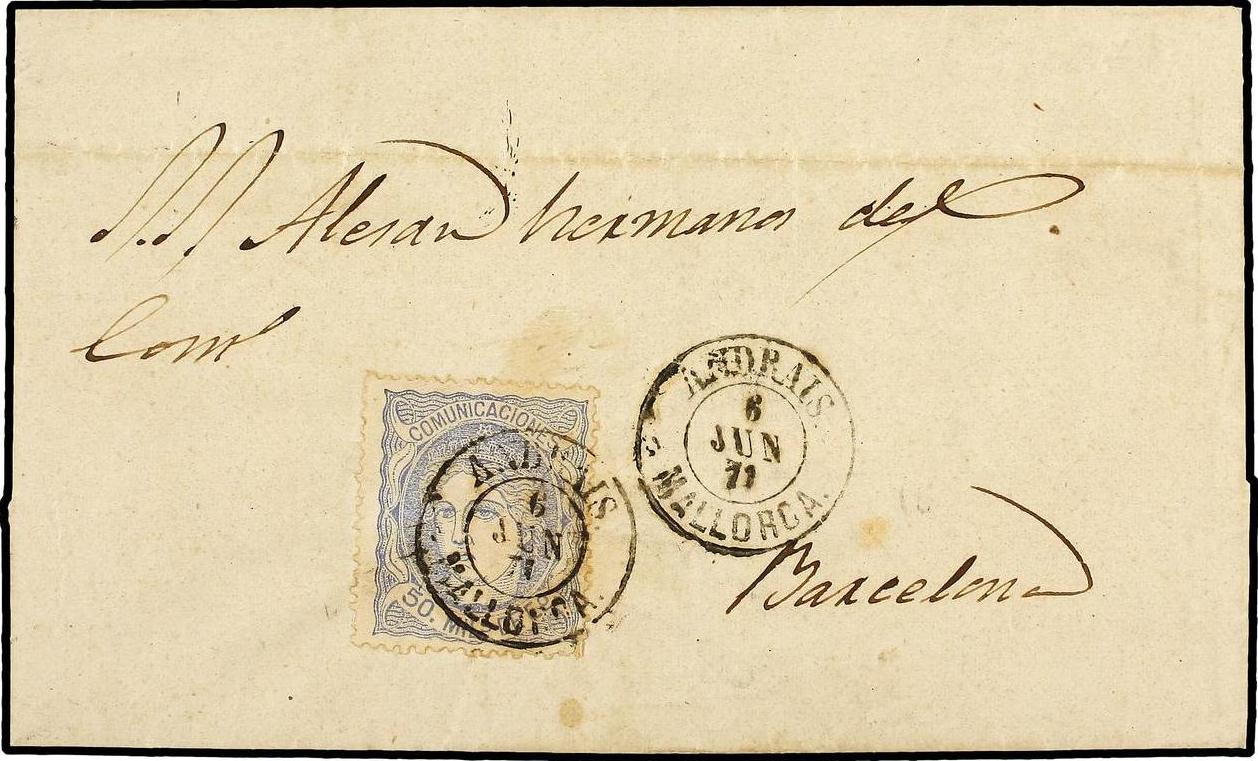 hermanos del
Com
COMUNICACIONES
50. MI
ANDRAIS
6
JUN
71
MALLORCA.
ANDRAIS
6
JUN
71
MALLORCA.
Barcelona